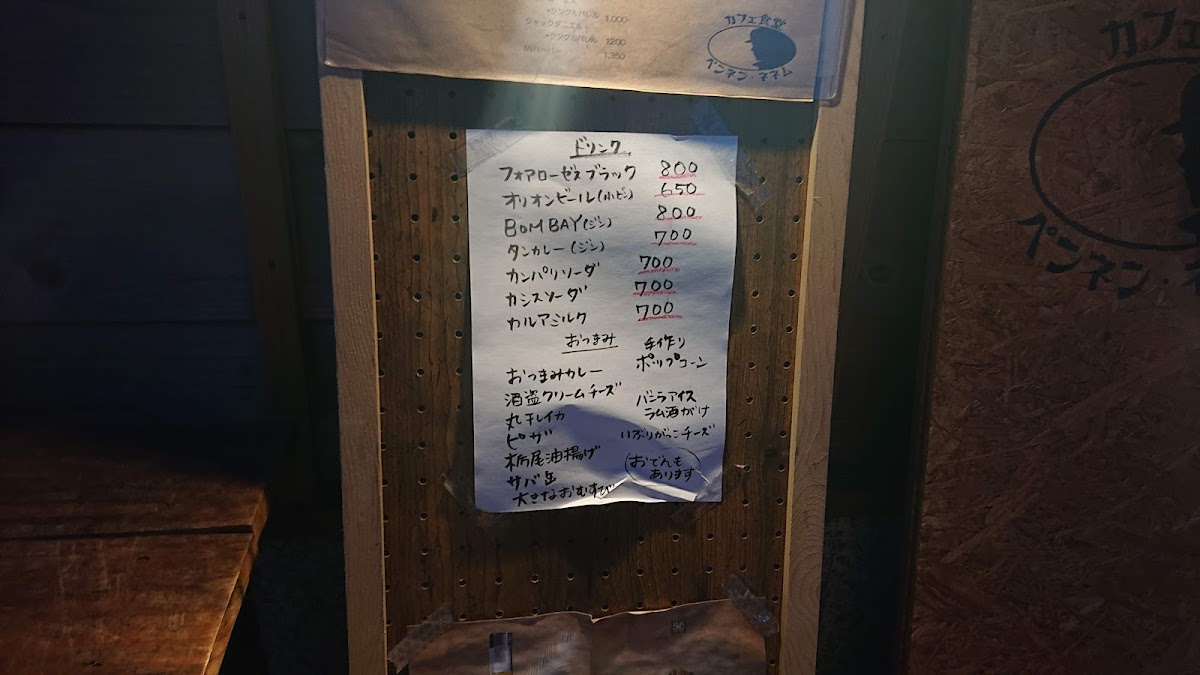 ・シングル/Wしル 1.000
ジャックダニエル
・シングル/Wしル 1200
IWハーパー 1.350
カフェ食堂
ペンネン・ネネム
カフェ
ペンネン・
ドリンク
フォアローゼスブラック 800
オリオンビール(小ビン) 650
BOMBAY(ジン) 800
タンカレー(ジン) 700
カンパリソーダ 700
カシスソーダ 700
カルアミルク 700
おつまみ
おつまみカレー
酒盗クリームチーズ
丸干しイカ
ピザ
栃尾油揚げ
サバ缶
大きなおむすび
手作り
ポップコーン
バニラアイス
ラム酒がけ
いぶりがっこチーズ
おでんも
あります